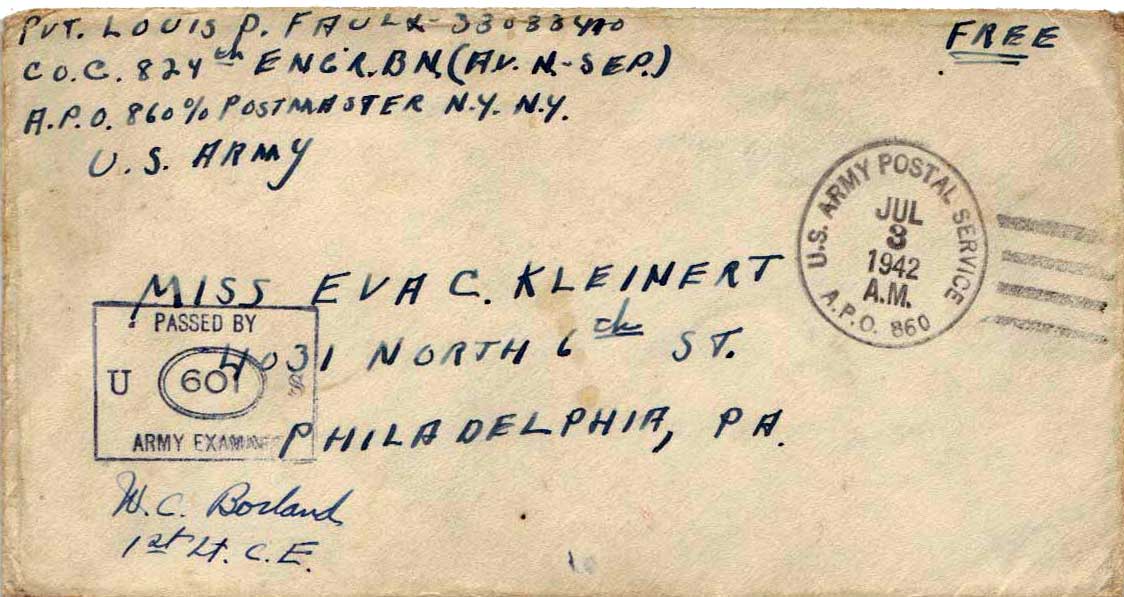 PVT. LOUIS P. FAULK 33033410
CO. C. 824th ENGR. BN. (AV. N.-SEP.)
A.P.O. 860 % POSTMASTER N.Y. N.Y.
U. S. ARMY
FREE
U.S. ARMY POSTAL SERVICE
JUL
3
1942
A.M.
A.P.O. 860
MISS EVA C. KLEINERT
4031 NORTH 6th ST.
PHILADELPHIA, PA.
PASSED BY
U 601 S
ARMY EXAMINER
W. C. Borland
1st Lt. C. E.